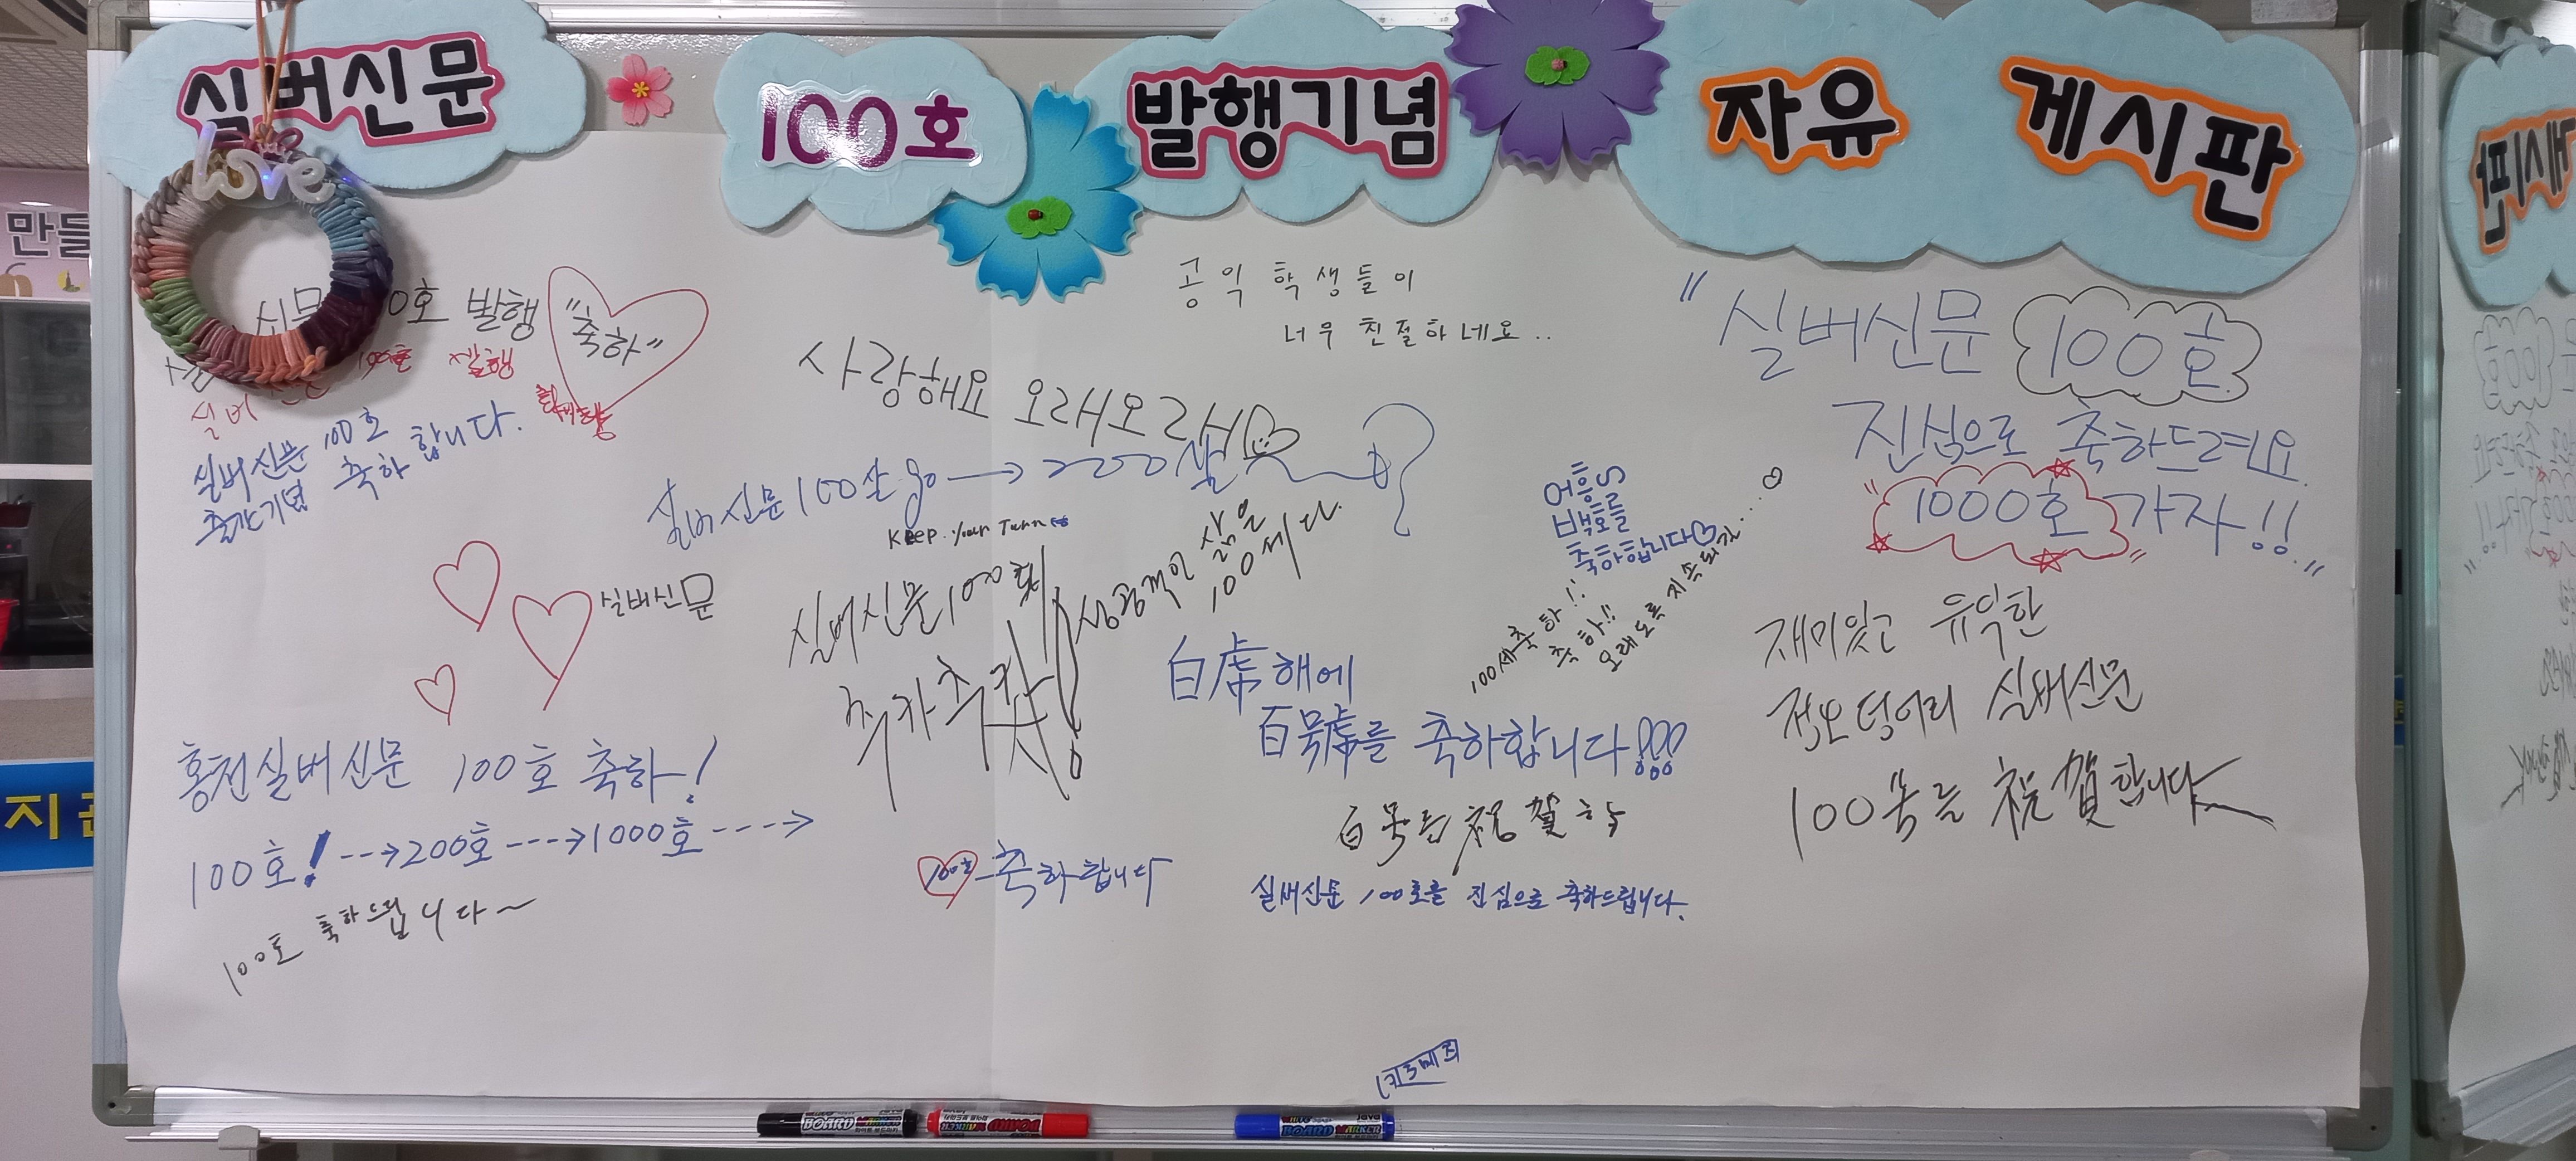 실버신문 100호 발행기념 자유 게시판
love
만들
신문 00호 발행
"축하"
실버
실버신문 100호
출간기념 축하 합니다.
실버신문
홍천실버신문 100호 축하!
100호! --→200호---→1000호----→
100호 축하드립니다~
공익 학생들이
너무 친절하네요..
사랑해요 오래오래
실버신문 100살 go → 200살
Keep your Turn
실버신문 100회
축카축카
성공적인 삶은
100세다.
白虎해에
百号虎를 축하합니다!!!
百号를 祝賀 하
100호 축하합니다
실버신문 100호를 진심으로 축하드립니다.
어흥S
백호를
축하합니다♡
100세축하!!
축하!!
오래도록 지속되길....♡
"실버신문 100호
진심으로 축하드려요
"1000호" 가자!!"
재미있고 유익한
정보덩어리 실버신문
100호를 祝賀합니다
BOARD MARKER
BOARD MARKER
java
BOARD MARKER
지관
게시판